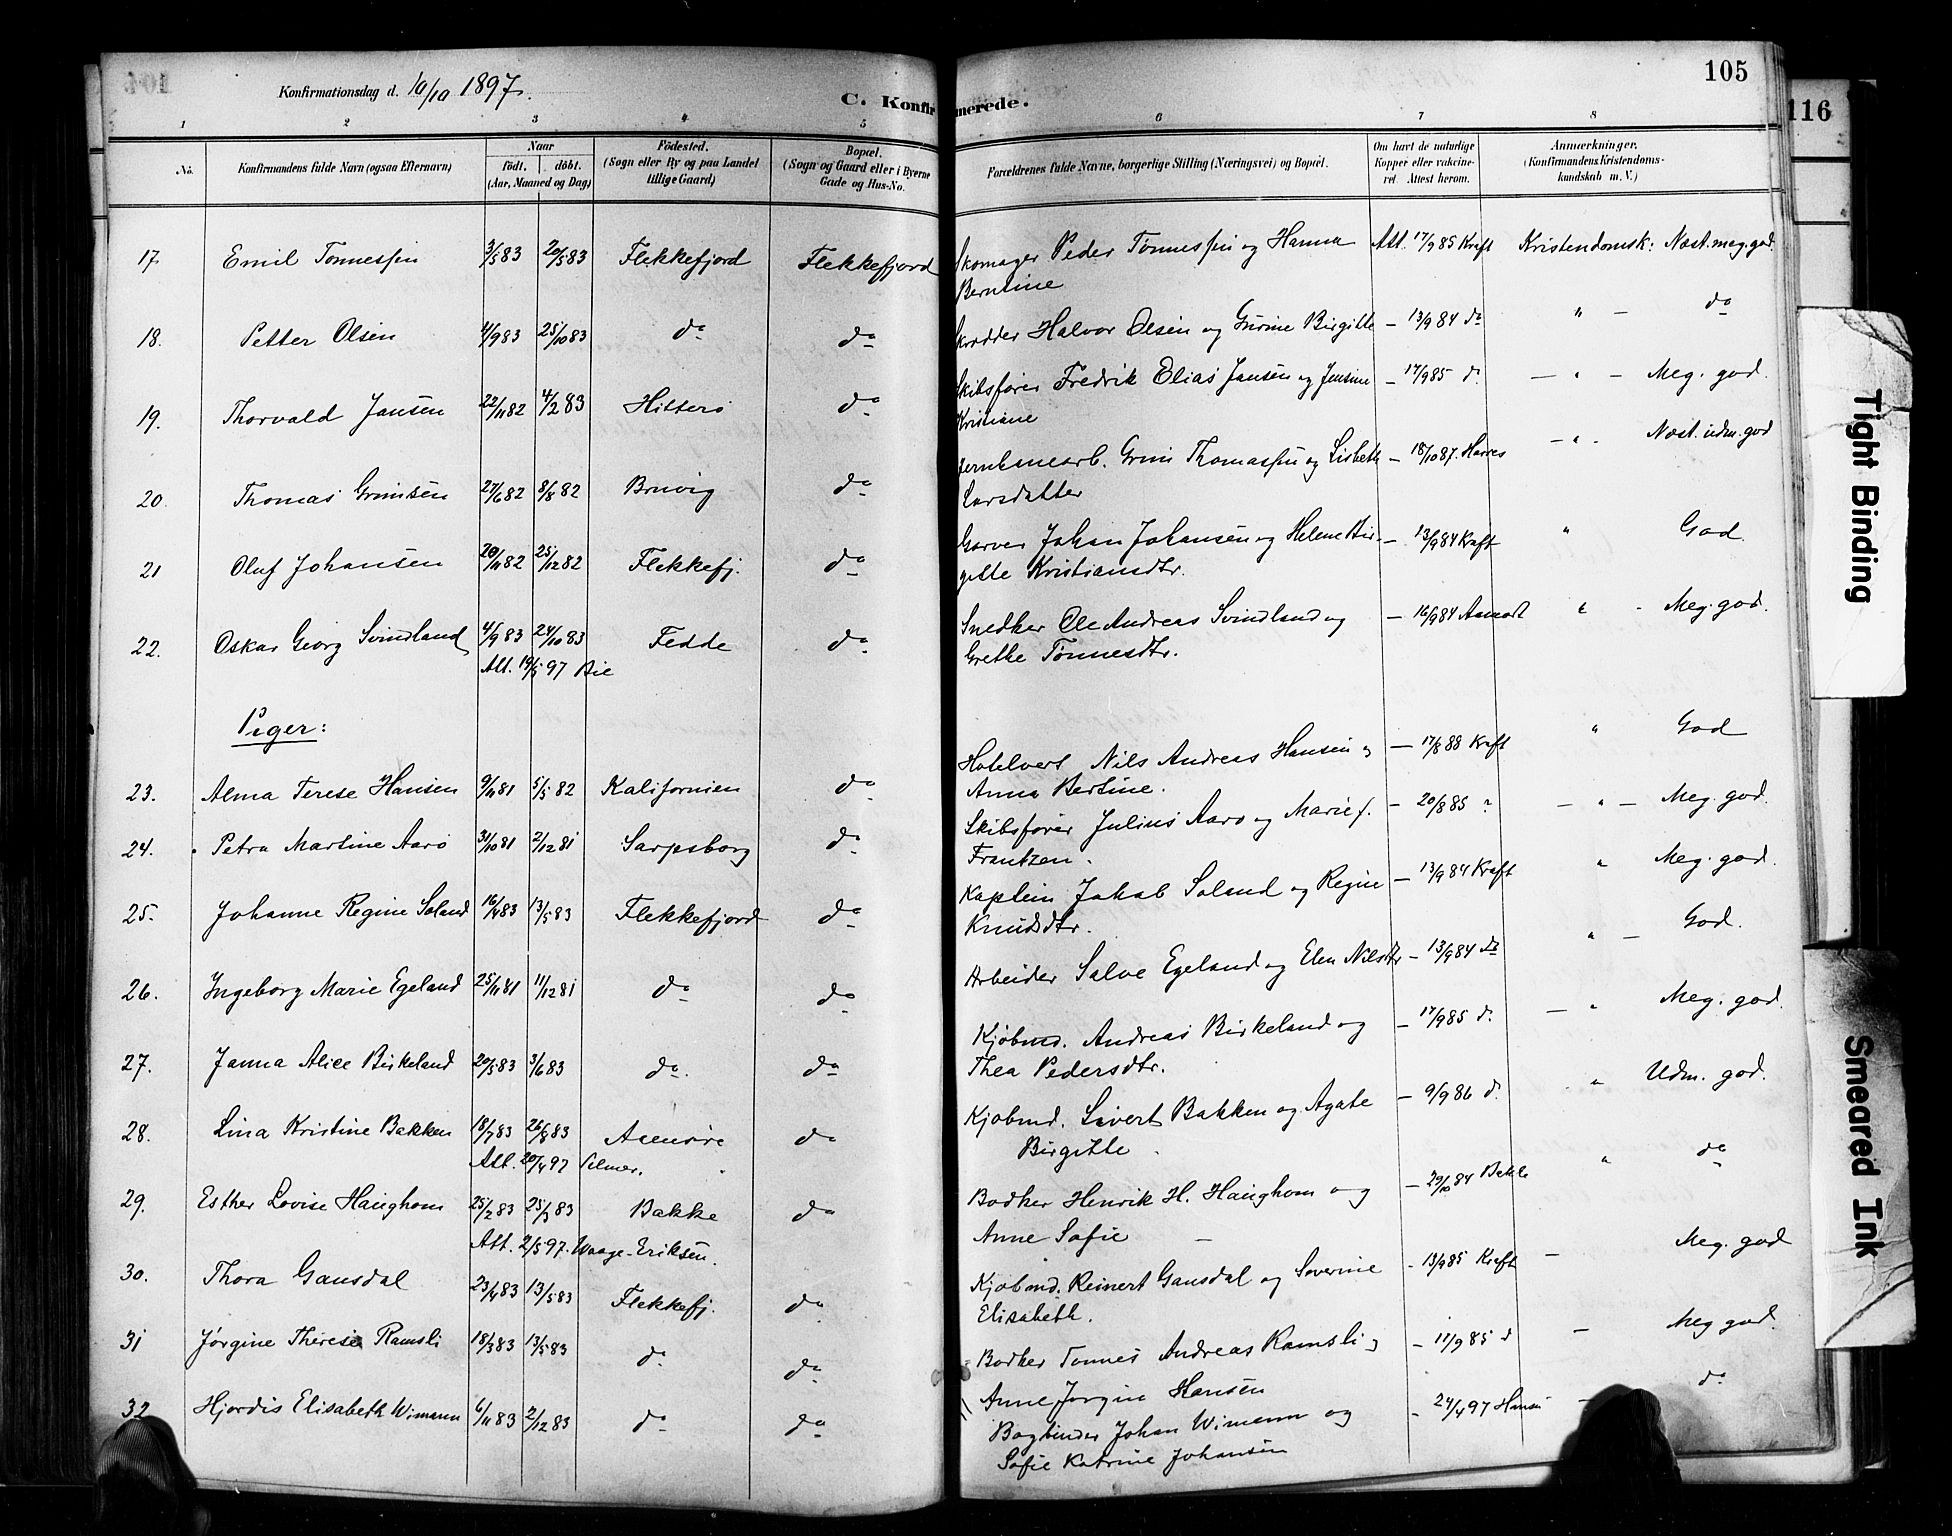 105
116
Konfirmationsdag d. 10/10 1897.
C. Konfirmerede.
1 2 3 4 5 6 7 8
No. Konfirmandens fulde Navn (ogsaa Efternavn) Naar födt. döbt. (Aar, Maaned og Dag) Födested. (Sogn eller By og paa Landet tillige Gaard) Bopæl. (Sogn og Gaard eller i Byerne Gade og Hus-No. Forældrenes fulde Navne, borgerlige Stilling (Næringsvei) og Bopæl. Om havt de naturlige Kopper eller vakcineret. Attest herom. Anmærkninger. (Konfirmandens Kristendomskundskab m. V.)
17 Emil Tønnessen 3/5 83 20/5 83 Flekkefjord Flekkefjord Skomager Peder Tønnessen og Hanna Berntine Att. 17/9 85 Kraft Kristendomsk: Næst. meg. god
18. Petter Olsen 4/9 83 25/10 83 do do Skrædder Halvor Olsen og Gurine Birgitte — 13/9 84 do " — do
19. Thorvald Jansen 22/11 82 4/2 83 Hitterø do Skibsfører Fredrik Elias Jansen og Jensine Kristiane — 17/9 85 do — " — Meg. god.
20. Thomas Grimsen 27/6 82 8/8 82 Bruvig do Jernbanearb. Grim Thomassen og Lisbeth Larsdatter — 18/10 87. — " . Næst. udm. god
21 Oluf Johansen 20/11 82 25/12 82 Flekkefj. do Garver Johan Johansen og Helene Birgitte Kristiansdtr. — 13/9 84 Kraft " God
22. Oskar Georg Svindland 4/9 83 24/10 83 Fedde do Snedker Ole Andreas Svindland og Grethe Tønnesdtr. — 16/9 84 Aamodt " - Meg. god.
Att. 19/5 97 Bie
Piger:
23. Alma Terese Hansen 9/11 81 5/5 82 Kalifornien do Hotelvert Nils Andreas Hansen og Anna Bertine. — 17/8 88 Kraft " God
24. Petra Martine Aarø 31/10 81 2/12 81 Sarpsborg do Skibsfører Julius Aarø og Marie f. Frantzen. — 20/8 85 " — " — Meg. god.
25. Johanne Regine Soland 16/4 83 13/5 83 Flekkefjord do Kaptein Jakob Soland og Regine Knudsdtr. — 13/9 84 Kraft " Meg. god.
26. Ingeborg Marie Egeland 25/11 81 11/12 81 do do Arbeider Salve Egeland og Elen Nilsdtr — 13/9 84 do " — God.
27. Janna Alice Birkeland 20/5 83 3/6 83 do. do Kjøbmd. Andreas Birkeland og Thea Pedersdtr. — 17/9 85 do. — " Meg. god.
28. Lina Kristine Bakken 18/7 83 26/8 83 do Kjøbmd. Sivert Bakken og Agate Birgitte. — 9/9 86 do. " Udm. god.
Att. 20/4 97
29. Esther Lovise Haughom 25/2 83 25/3 83 Bakke do Bødker Henrik H. Haughom og Anne Sofie — — 29/10 84 " do
Att. 2/5 97. Waage-Eriksen.
30. Thora Gausdal 23/4 83 13/5 83 Flekkefj. do Kjøbmd. Reinert Gausdal og Severine Elisabeth. - 13/9 85 Kraft — Meg. god
31 Jørgine Therese Ramsli 18/3 83 13/5 83 do do Bødker Tønnes Andreas Ramsli og Anne Jørgine Hansen — 11/9 85 do — Meg god.
32 Hjørdis Elisabeth Wimann 6/11 83 2/12 83 do do Bogbinder Johan Wimann og Sofie Katrine Johansen - 24/4 97 - do
Tight Binding
Smeared Ink